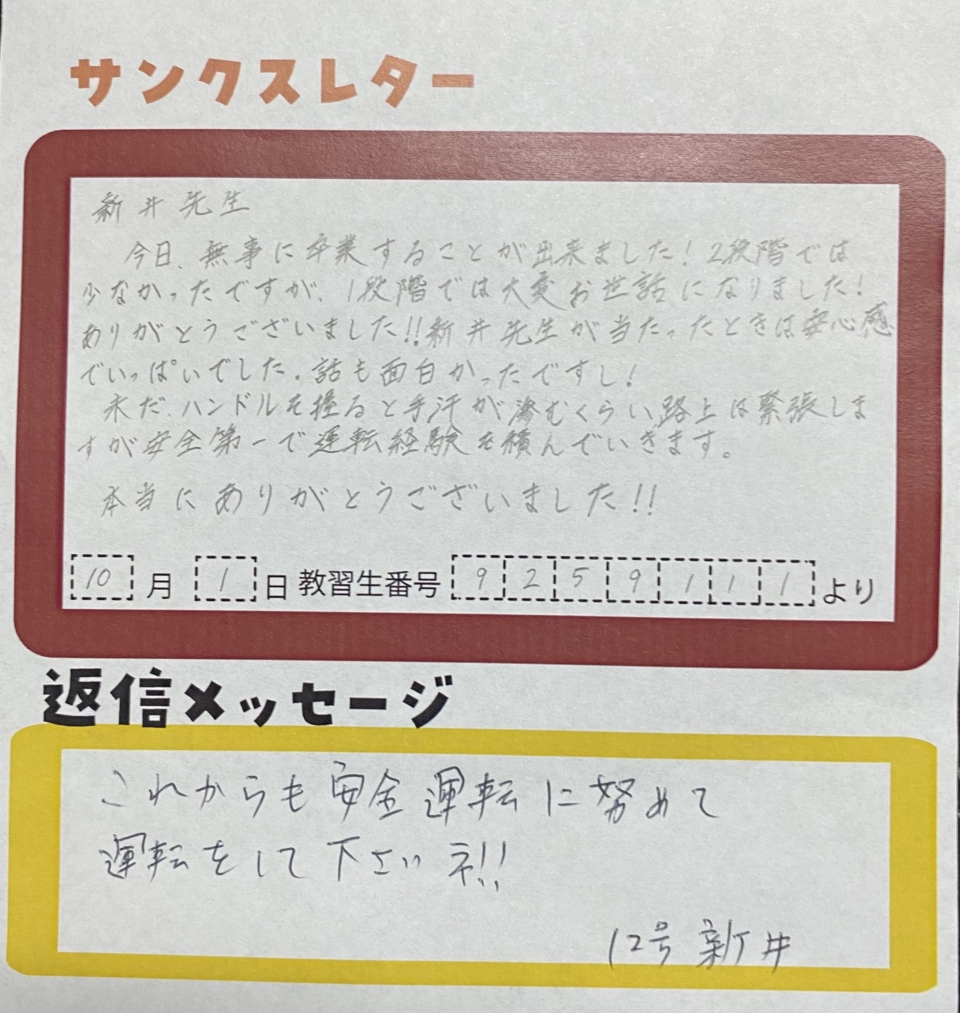 サンクスレター
新井先生
今日、無事に卒業することが出来ました！2段階では
少なかったですが、1段階では大変お世話になりました！
ありがとうございました!!新井先生が当たったときは安心感
でいっぱいでした。話も面白かったですし！
未だ、ハンドルを握ると手汗が滲むくらい路上は緊張しま
すが安全第一で運転経験を積んでいきます。
本当にありがとうございました!!
10月1日教習生番号9259111より
返信メッセージ
これからも安全運転に努めて
運転をして下さいネ!!
12号新井